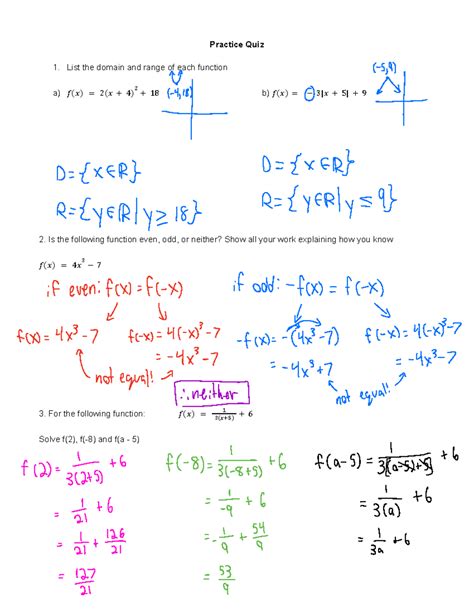 Practice Quiz
1. List the domain and range of each function
a) f(x) = 2(x + 4)² + 18 (-4,18)
b) f(x) = -3|x + 5| + 9 (-5,9)
D={x∈R}
R={y∈R|y≥18}
D={x∈R}
R={y∈R|y≤9}
2. Is the following function even, odd, or neither? Show all your work explaining how you know
f(x) = 4x³ − 7
if even: f(x)=f(-x)
f(x)=4x³-7 f(-x)=4(-x)³-7
=-4x³-7
not equal!
if odd: -f(x) = f(-x)
-f(x)=-(4x³-7) f(-x)=4(-x)³-7
=-4x³+7 =-4x³-7
not equal!
∴neither
3. For the following function: f(x) = 1/3(x+5) + 6
Solve f(2), f(-8) and f(a - 5)
f(2)= 1/3(2+5) +6
= 1/21 +6
= 1/21 + 126/21
= 127/21
f(-8)= 1/3(-8+5) +6
= 1/-9 +6
= -1/9 + 54/9
= 53/9
f(a-5)= 1/3(a-5+5) +6
= 1/3(a) +6
= 1/3a +6